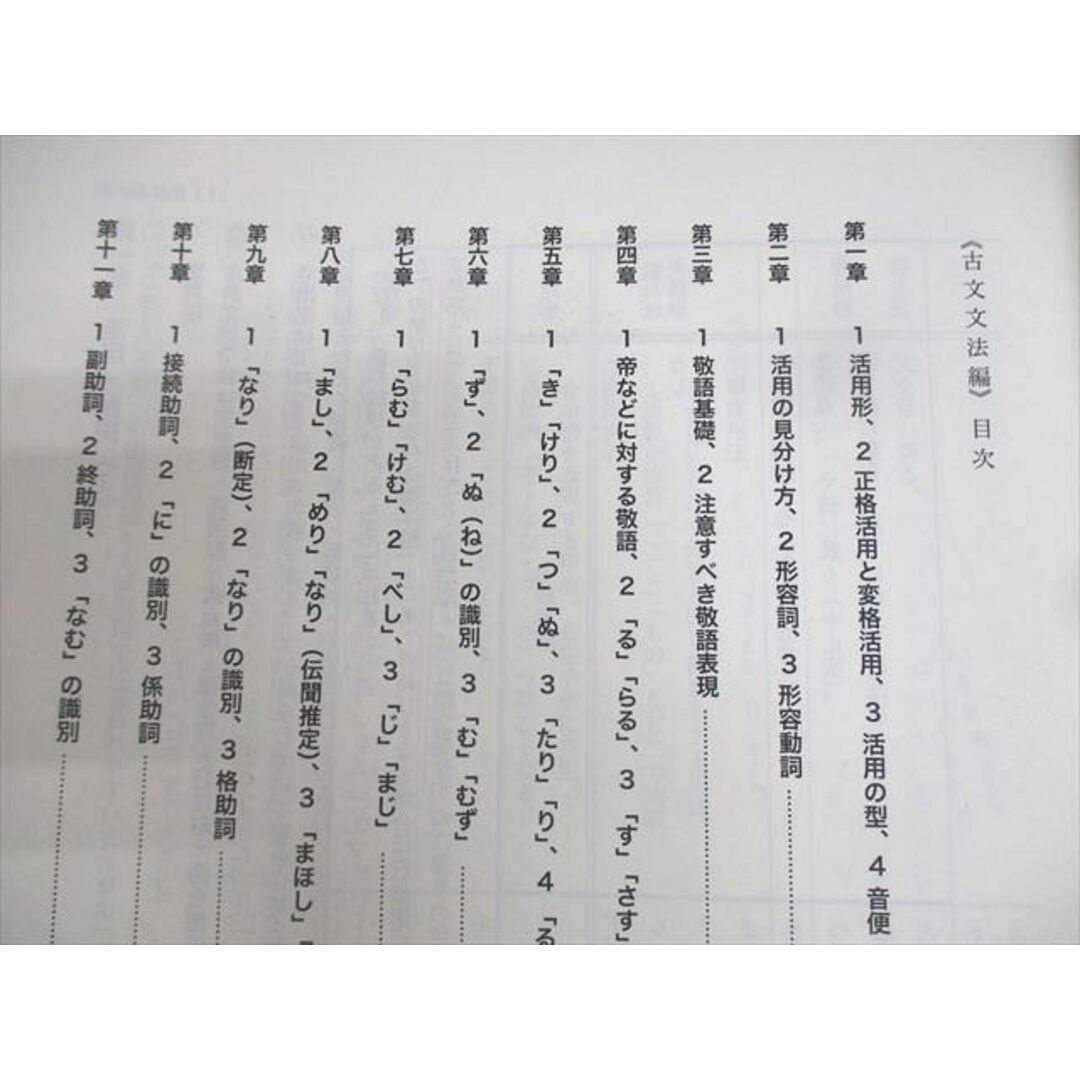 《古文文法編》目次
第一章　1 活用形、2 正格活用と変格活用、3 活用の型、4 音便
第二章　1 活用の見分け方、2 形容詞、3 形容動詞
第三章　1 敬語基礎、2 注意すべき敬語表現
第四章　1 帝などに対する敬語、2「る」「らる」、3「す」「さす」
第五章　1「き」「けり」、2「つ」「ぬ」、3「たり」「り」、4「る
第六章　1「ず」、2「ぬ（ね）」の識別、3「む」「むず」
第七章　1「らむ」「けむ」、2「べし」、3「じ」「まじ」
第八章　1「まし」、2「めり」「なり」（伝聞推定）、3「まほし」「
第九章　1「なり」（断定）、2「なり」の識別、3 格助詞
第十章　1 接続助詞、2「に」の識別、3 係助詞
第十一章　1 副助詞、2 終助詞、3「なむ」の識別